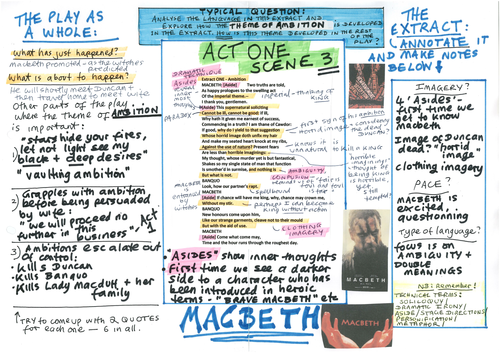 THE PLAY AS A WHOLE:
What has just happened?
Macbeth promoted - as the witches predicted
What is about to happen?
He will shortly meet Duncan + then travel home to meet wife.
Other parts of the play where the theme of AMBITION is important:
1) "Stars hide your fires,
let not light see my
black + deep desires"
"vaulting ambition"
2) Grapples with ambition
before being persuaded
by wife:
"we will proceed no
further in this
business"
Act 1
3) Ambitions escalate out
of control:
- Kills Duncan
- Kills Banquo
- Kills Lady Macduff + her
family
↑ TRY to come up with 2 QUOTES
for each one - 6 in all.
TYPICAL QUESTION:
ANALYSE THE LANGUAGE IN THIS EXTRACT AND
EXPLORE HOW THE THEME OF AMBITION IS DEVELOPED
IN THE EXTRACT. HOW IS THIS THEME DEVELOPED IN THE REST
OF THE PLAY?
ACT ONE
SCENE 3
DRAMATIC
TECHNIQUE
Asides
Extract One - Ambition
MACBETH [Aside] Two truths are told,
As happy prologues to the swelling act
Of the imperial theme.—
I thank you, gentlemen.
[Aside] This supernatural soliciting
Cannot be ill, cannot be good: if ill,
Why hath it given me earnest of success,
Commencing in a truth? I am thane of Cawdor:
If good, why do I yield to that suggestion
Whose horrid image doth unfix my hair
And make my seated heart knock at my ribs,
Against the use of nature? Present fears
Are less than horrible imaginings:
My thought, whose murder yet is but fantastical,
Shakes so my single state of man that function
Is smother'd in surmise, and nothing is
But what is not.
BANQUO
Look, how our partner's rapt.
MACBETH
[Aside] If chance will have me king, why, chance may crown me,
Without my stir.
BANQUO
New honours come upon him,
Like our strange garments, cleave not to their mould
But with the aid of use.
MACBETH
[Aside] Come what may,
Time and the hour runs through the roughest day.
PARADOX
AMBIGUITY
CONFUSION
CLOTHING
IMAGERY
- "ASIDES" show inner thoughts
- First time we see a darker
side to a character who has
been introduced in heroic
terms - "BRAVE MACBETH" etc
MACBETH
THE
EXTRACT:
(ANNOTATE IT
AND MAKE NOTES
BELOW ↓)
IMAGERY?
4 'Asides' -
first time we
get to know
Macbeth
Image of Duncan
dead? "horrid
image"
clothing imagery
PACE?
MACBETH is
excited,
questionning
Type of language?
FOCUS is on
AMBIGUITY +
DOUBLE
MEANINGS
NB: Remember!
TECHNICAL TERMS:
SOLILOQUY /
DRAMATIC IRONY /
ASIDE / STAGE DIRECTIONS /
PERSONIFICATION /
METAPHOR /
MACBETH
MACBETH